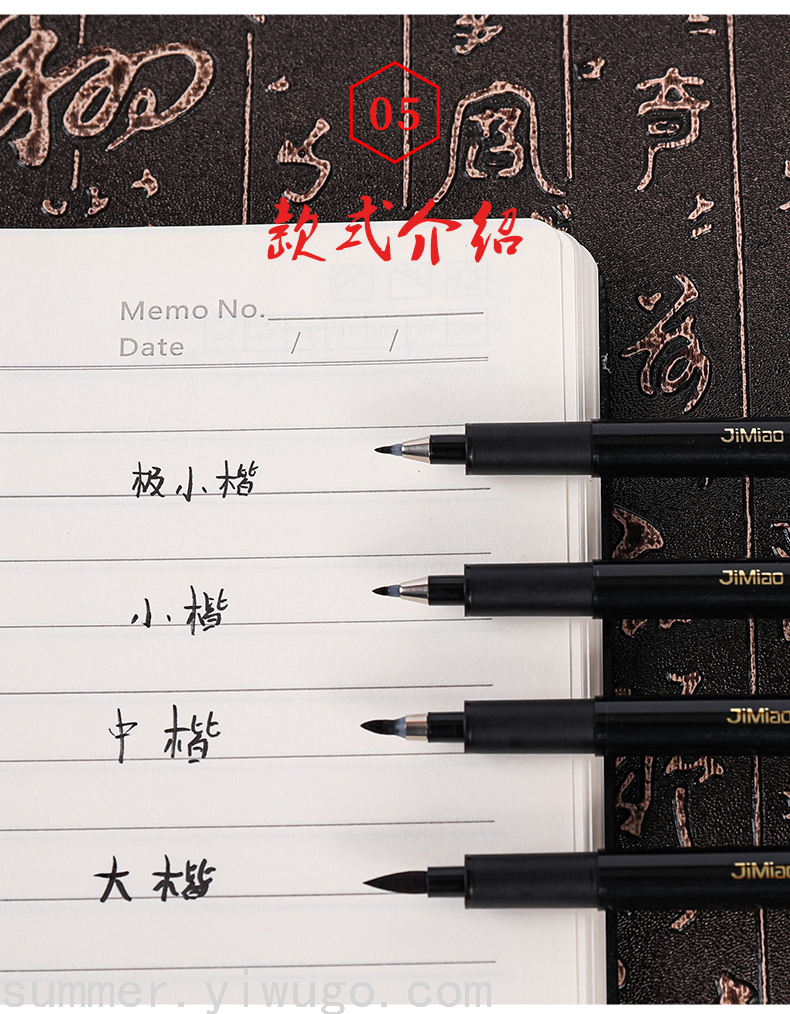 05
款式介绍
Memo No.
Date / /
JiMiao
极小楷
JiMiao
小楷
JiMiao
中楷
JiMiao
大楷
summer.yiwugo.com